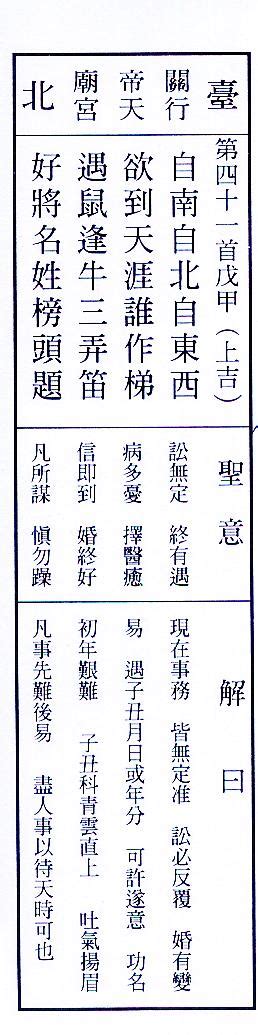 臺
關行
帝天
廟宮
北
第四十一首戊甲（上吉）
自南自北自東西
欲到天涯誰作梯
遇鼠逢牛三弄笛
好將名姓榜頭題
聖意
訟無定 終有遇
病多憂 擇醫癒
信即到 婚終好
凡所謀 愼勿躁
解曰
現在事務 皆無定准 訟必反覆 婚有變
易 遇子丑月日或年分 可許遂意 功名
初年艱難 子丑科青雲直上 吐氣揚眉
凡事先難後易 盡人事以待天時可也